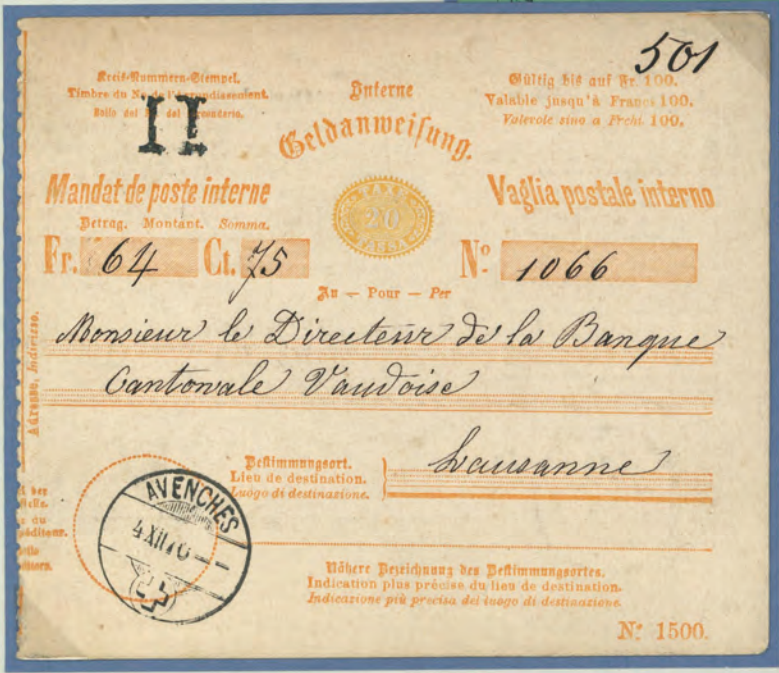 501
Kreis-Nummern-Stempel.
Timbre du No de l'Arrondissement.
Bollo del del Circondario.
II
Interne
Geldanweisung.
Gültig bis auf Fr. 100.
Valable jusqu'à Francs 100.
Valevole sino a Frchi. 100.
Mandat de poste interne
TAXE
20
TASSA
Vaglia postale interno
Betrag. Montant. Somma.
Fr. 64 Ct. 75
No. 1066
An — Pour — Per
Adresse, Indirizzo.
Monsieur le Directeur de la Banque
Cantonale Vaudoise
Bestimmungsort.
Lieu de destination.
Luogo di destinazione.
Lausanne
AVENCHES
4 XII 70
Nähere Bezeichnung des Bestimmungsortes.
Indication plus précise du lieu de destination.
Indicazione più precisa del luogo di destinazione.
No. 1500.